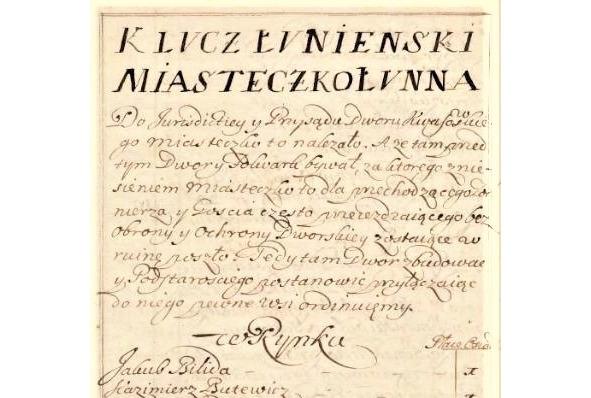 KLUCZ ŁUNIENSKI
MIASTECZKO ŁUNNA
Do Jurisdictiey y Przysądu Dworu Kwasowskie-
go miasteczko to nalezało. A ze tam przed
tym Dwor y Folwark bywał, za ktorego znie-
sieniem miasteczko to dla przechodzącego zo-
nierza, y Goscia często przeiezdzaiącego bez
obrony y Ochrony Dworskiey zostaiące w
ruinę poszło. Tedy tam Dwor zbudować
y Podstarosciego postanowić wyłączaiąc
do niego pewne wsi ordinuięmy.
w Rynku
Place
Jakub Bilida 1
Kazimierz Butewicz